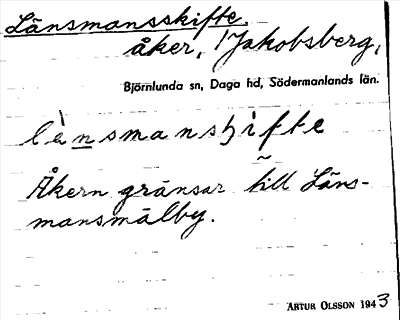 Länsmansskifte,
åker, Jakobsberg,
Björnlunda sn, Daga hd, Södermanlands län.
lènsmansʃifte
Åkern gränsar till Läns-
mansmälby.
ARTUR OLSSON 1943